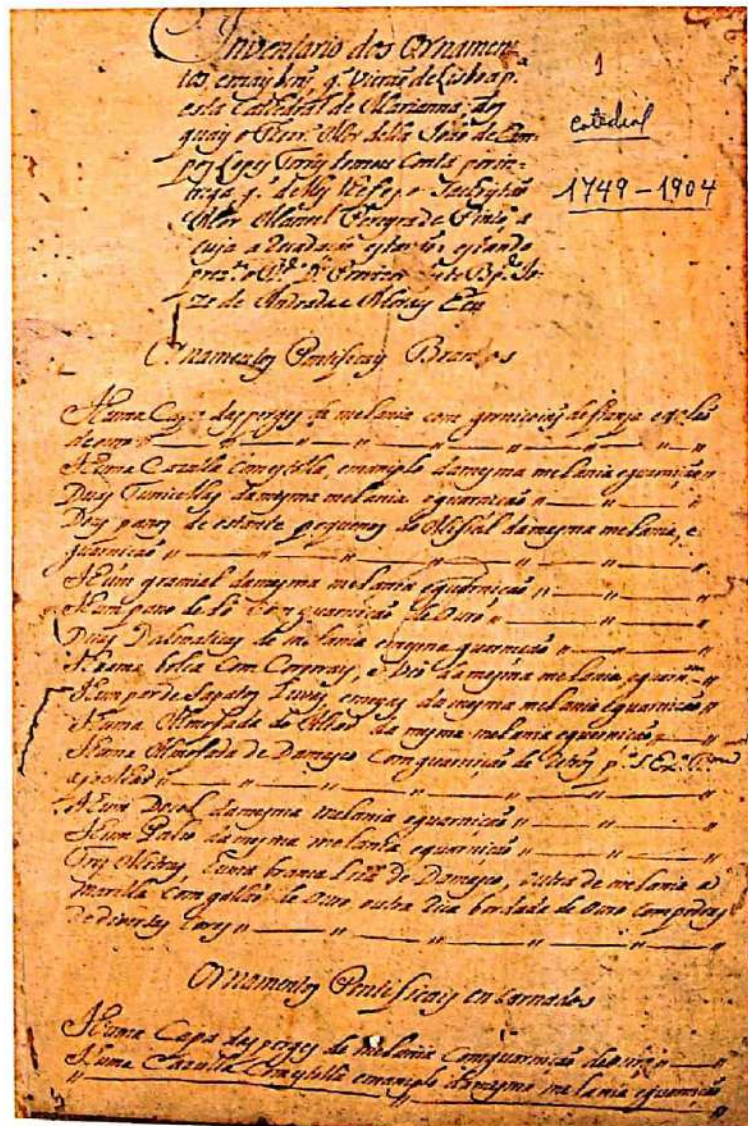 Inventario dos Ornamen-
tos, emay bens, q. vierão de Lisboa p.ª
esta Cathedral de Marianna, dos
quay o
Lopes
q.
Manoel Pereyra de Pinto, a
cuja aRecadação estavão, estando
prez.te o
de Andrade e Moraes
1
catedral
1749-1904
Ornamentos Pontificays Brancos
Huma Capa dasperges de melania com guarniçois de franja egalões
de ouro
Huma Cazulla Comestolla, emaniplo damesma melania eguarnição
Duas Tunicellas damesma melania eguarnição
Dous panos de estante pequenos do Missal damesma melania, e
guarnição
Hum gremial damesma melania eguarnição
Hum pano de Com guarnição de Ouro
Duas Dalmaticas de melania emesma guarnição
Huma bolca Com Corporays, e Véo damesma melania eguarn.am
Hum par de Sapatos Luvas, emeyas damesma melania eguarnição
Huma Almofada do Missal da mesma melania eguarnição
Huma Almofada de Damasco Comguarnição de p.ª S Ex.ª R.ma
ajoelhar
Hum Docel damesma melania eguarnição
Hum Palio damesma melania eguarnição
Tres Mitras, huma branca de Damasco, outra de melania a
marella Com galão de Ouro outra Rica bordada de Ouro Compedras
de diversas Cores
Ornamentos Pontificais encarnados
Huma Capa dasperges de melania Comguarnição de ouro
Huma Cazulla Comestolla emaniplo damesma melania eguarnição